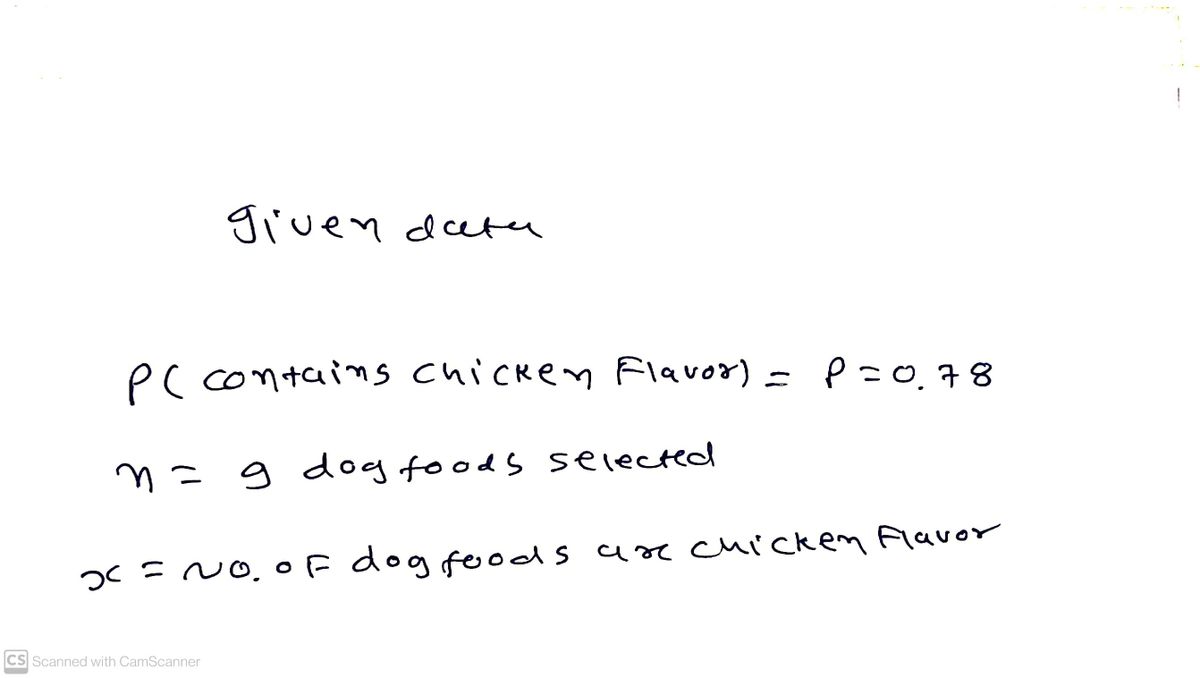 given data
P( contains chicken Flavor) = P=0.78
n = 9 dog foods selected
x = No. of dog foods are chicken Flavor
CS Scanned with CamScanner